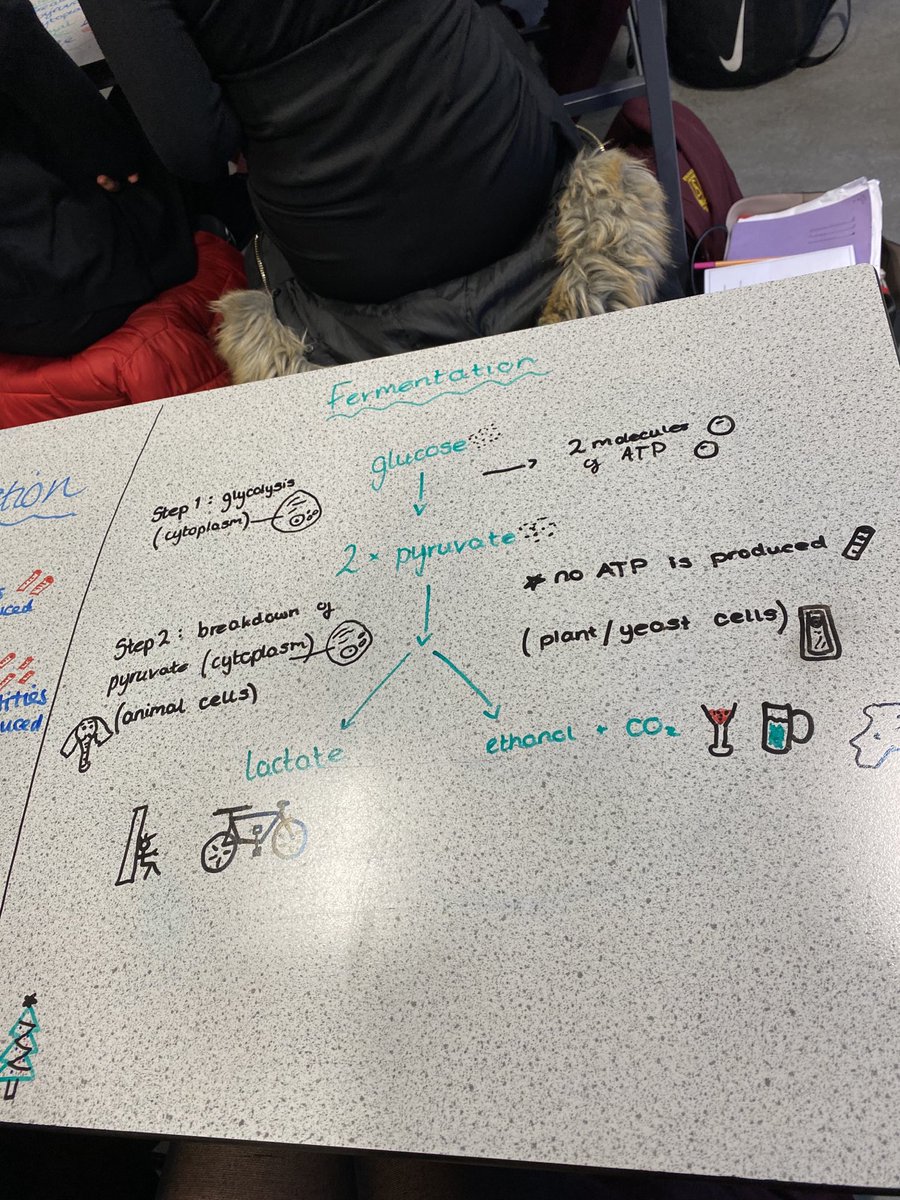 Fermentation
glucose
2 molecules
of ATP
Step 1: glycolysis
(cytoplasm)
2 × pyruvate
* no ATP is produced
(plant/yeast cells)
Step 2: breakdown of
pyruvate (cytoplasm)
(animal cells)
lactate
ethanol + CO₂